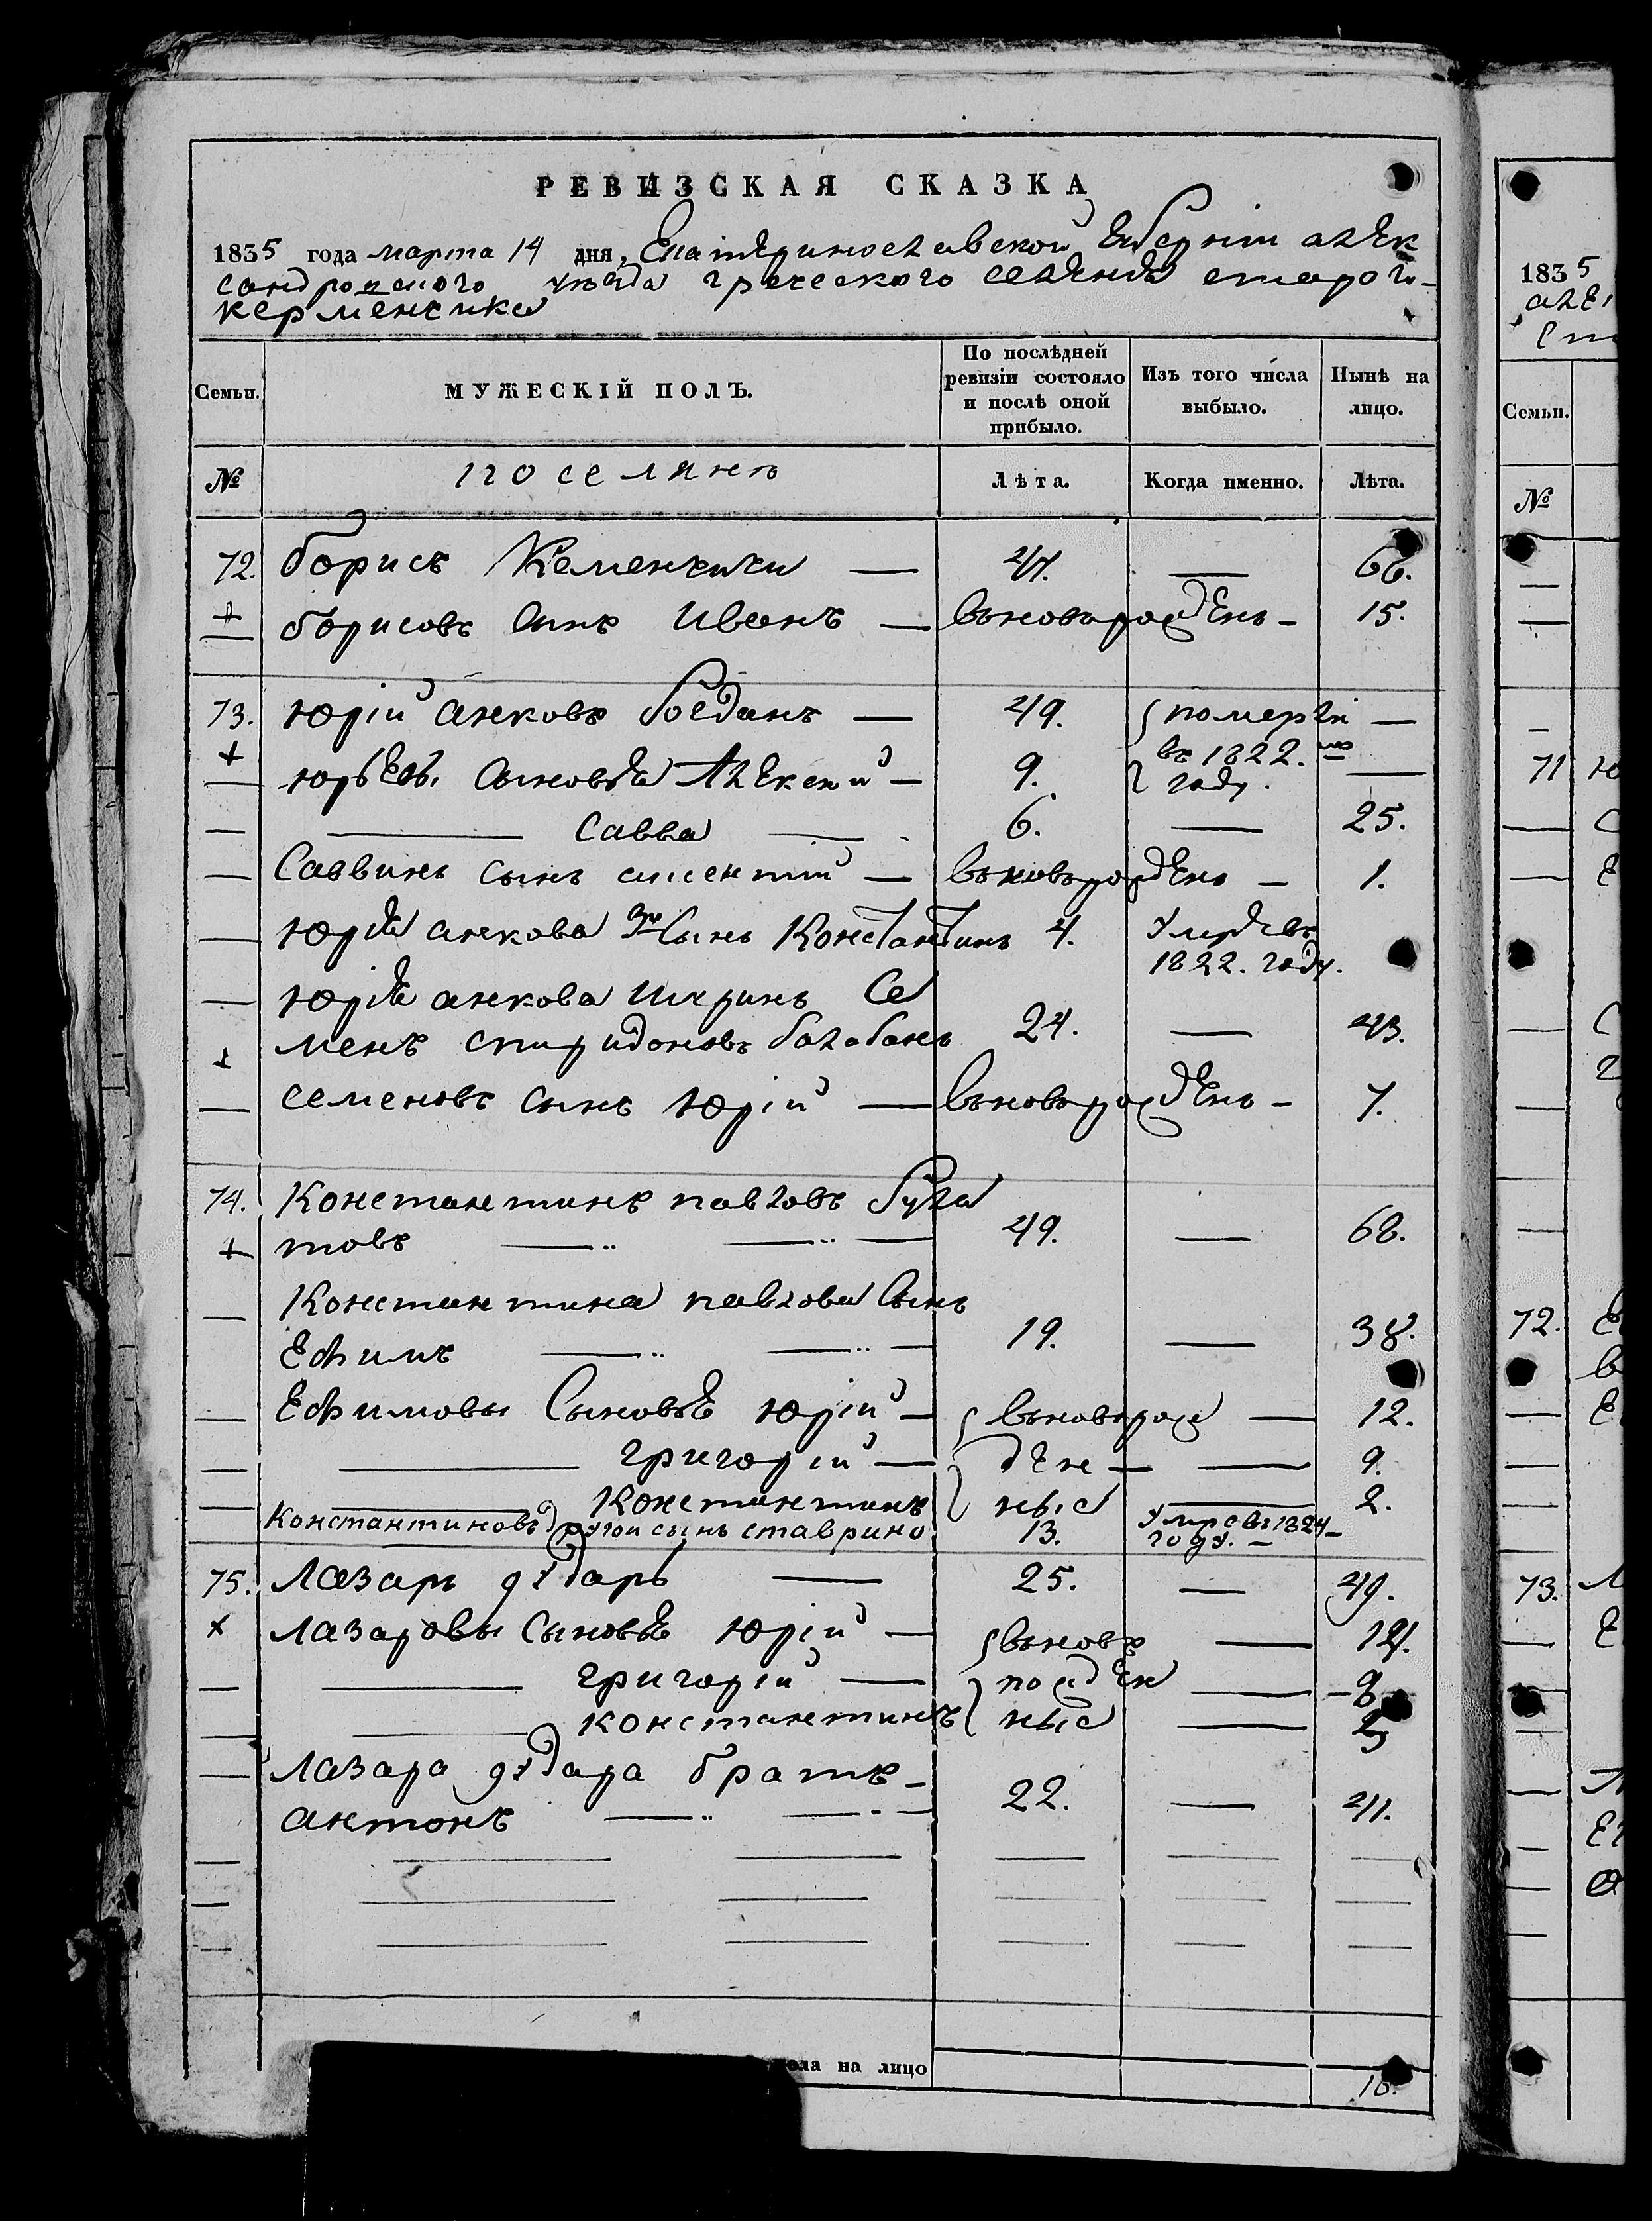 РЕВИЗСКАЯ СКАЗКА
1835 года марта 14 дня, Екатеринославской Губерніи алек
сандровского уезда греческого селенія старого
керменчика
Семьи.
МУЖЕСКІЙ ПОЛЪ.
По послѣдней ревизіи состояло и послѣ оной прибыло.
Изъ того числа выбыло.
Нынѣ на лицо.
№
поселянъ
Лѣта.
Когда именно.
Лѣта.
72. борисъ Кеменчичи — 47. — 66.
борисовъ сынъ иванъ — вьновьрожденъ — 15.
73. юрій анковъ богданъ — 49. померли —
юрьевы сыновья Алексей — 9. въ 1822. мъ году. —
— савва — 6. — 25.
Саввинъ сынъ — вьновьрожденъ — 1.
юрія анкова 3й сынъ Константинъ 4. умре въ
1822. году.
юрія анкова шуринъ Се
менъ спиридоновъ балабанъ 24. — 43.
семеновъ сынъ юрій — вьновьрожденъ — 7.
74. Константинъ павловъ була
товъ — 49. — 68.
Константина павлова сынъ
Ефимъ — 19. — 38.
Ефимовы сыновья юрій — вьноворож — 12.
— григорій — ден — 9.
— Константинъ ные — 2.
Константиновъ другои сынъ ставрино 13. умре въ 1824
году. —
75. Лазарь — 25. — 49.
лазаровы сыновья юрій — вьновь — 12.
— григорій — рожден — 9
— константинъ ные —
Лазара братъ —
антонъ — 22. — 41.
ола на лицо
16.
1835
але
Ст
Семьи.
№
71 ю
72. Е
73. Л